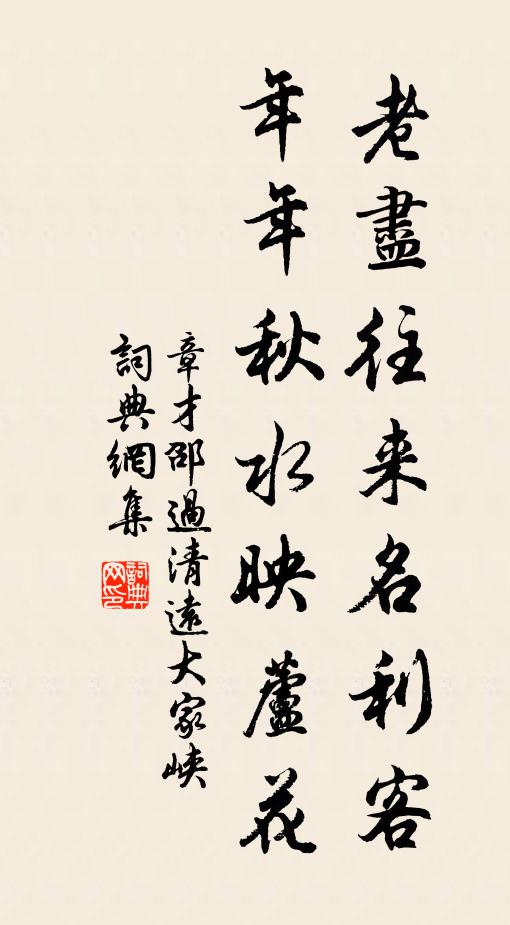 老盡往来名利客
年年秋水映蘆花
章才邵過清遠大家峽
詞典網集
詞典网印